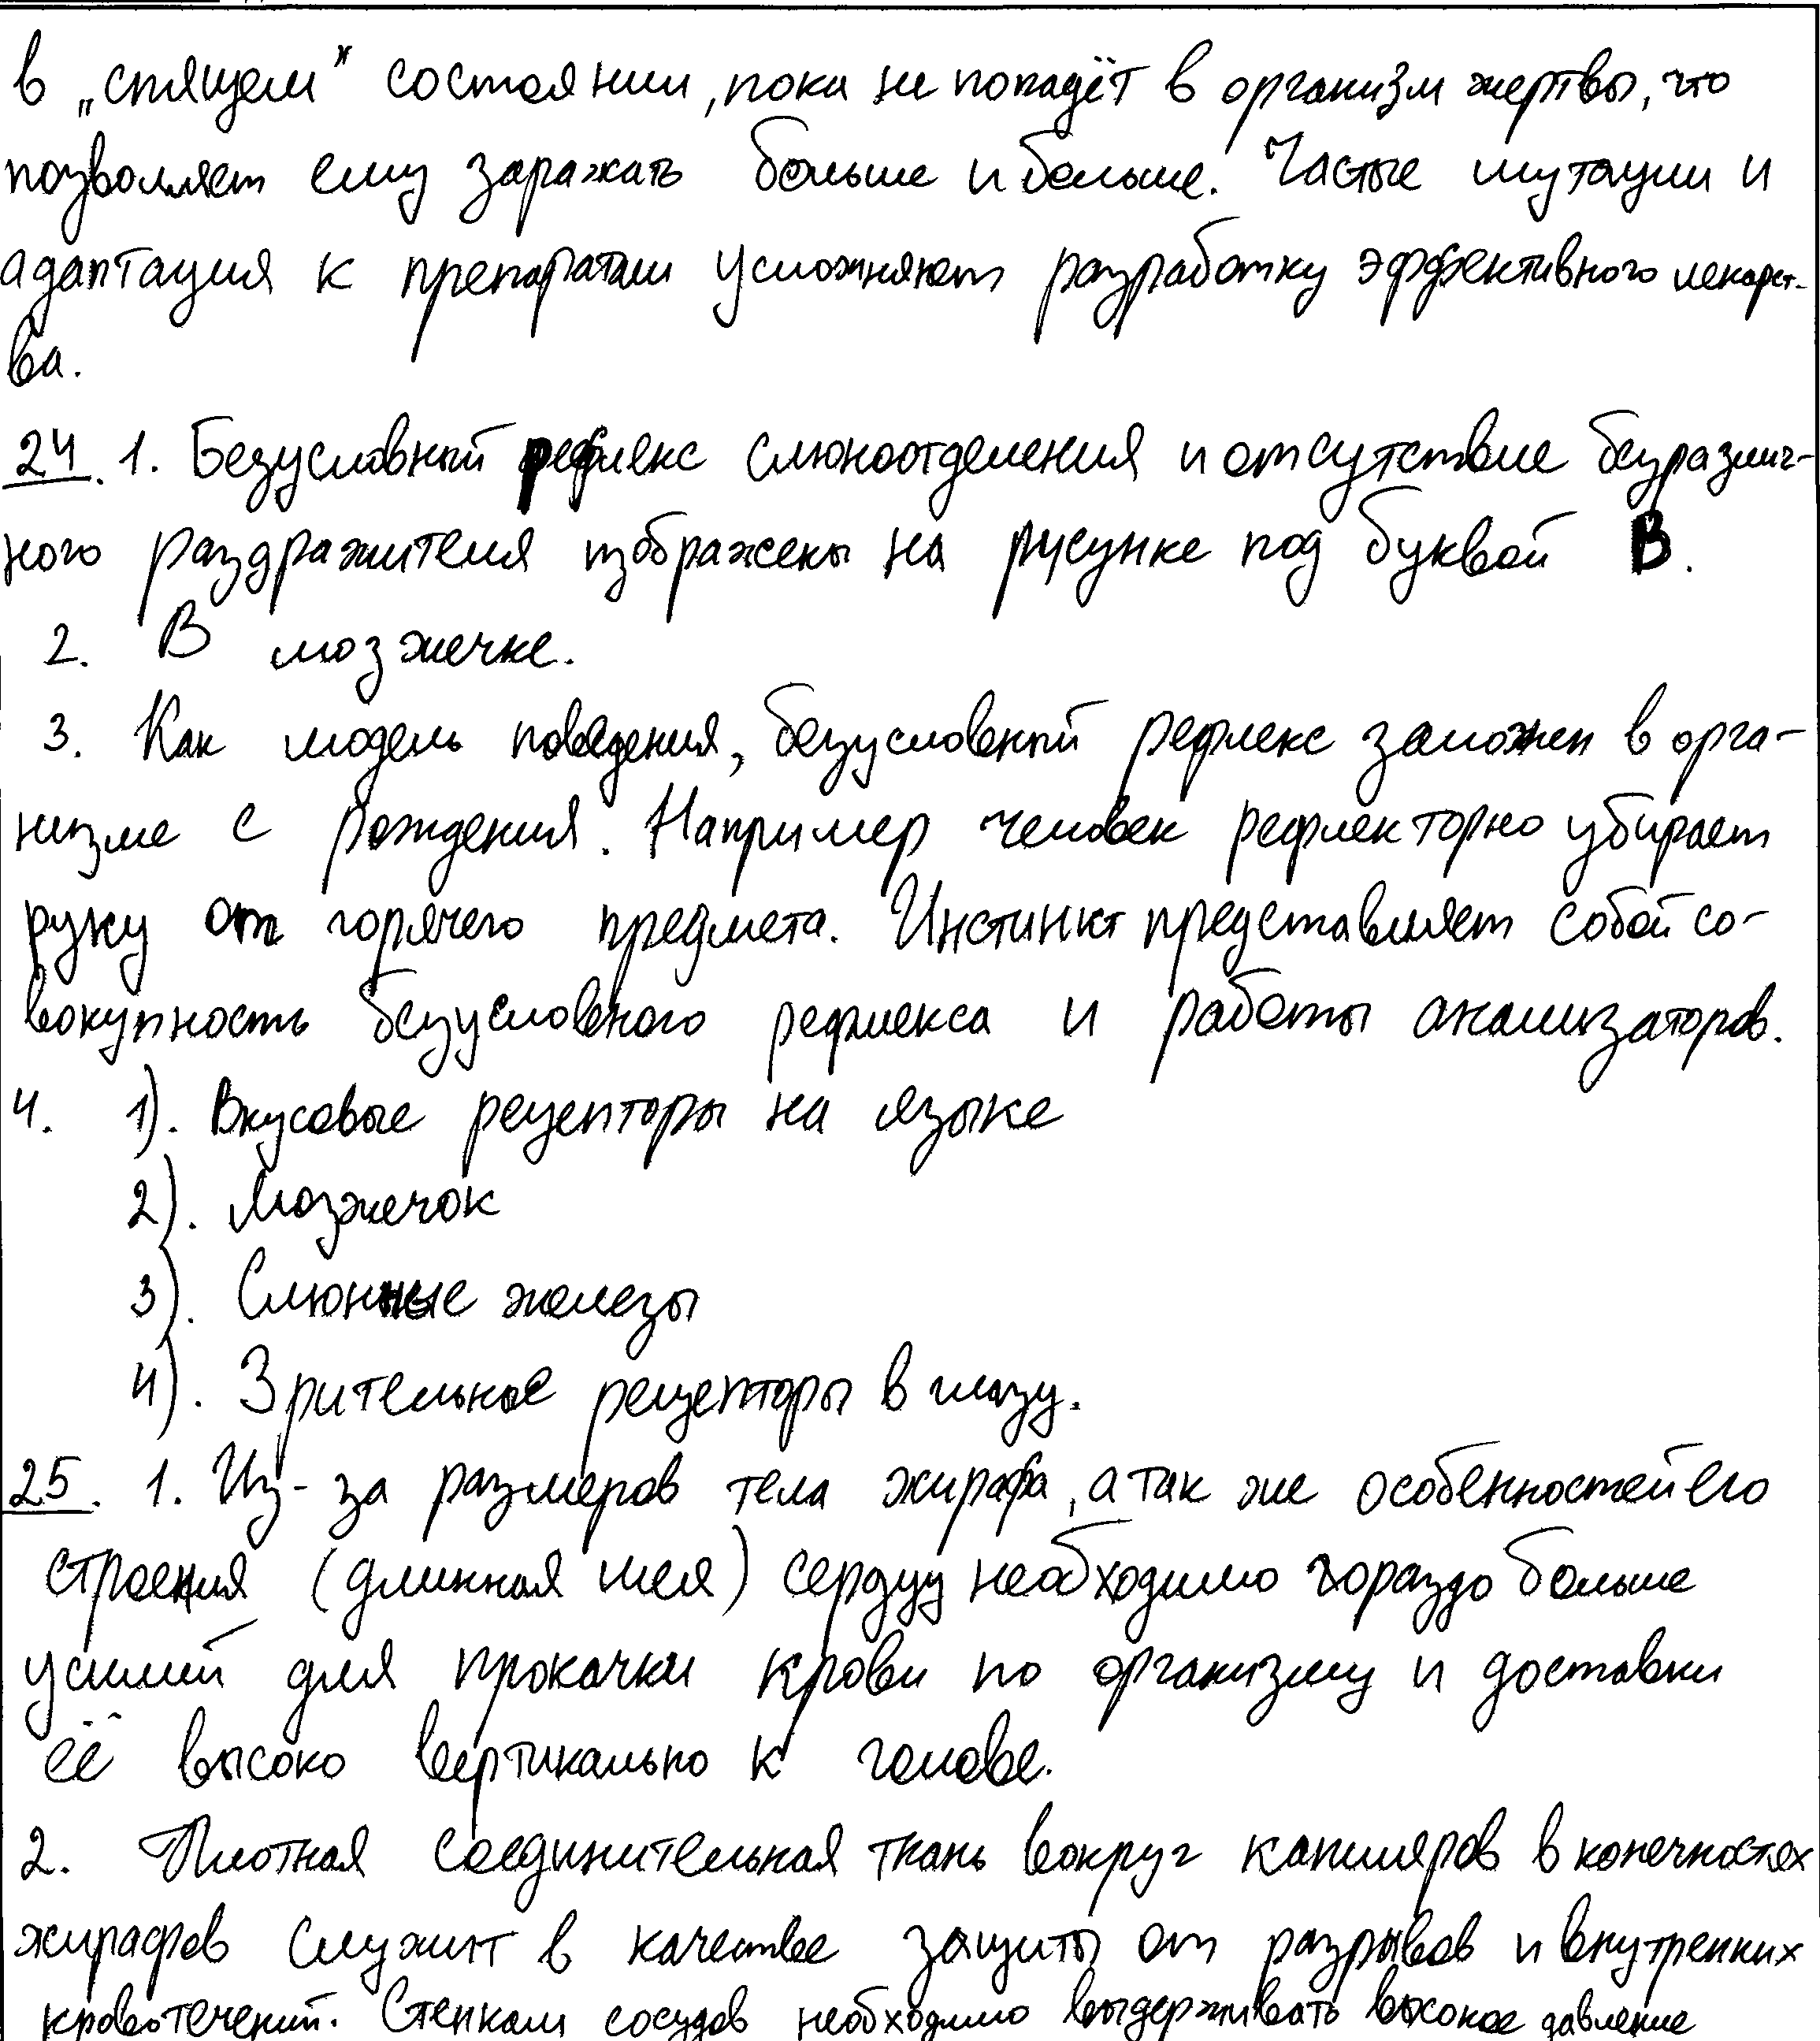 в „спящем" состоянии, пока не попадёт в организм жертвы, что
позволяет ему заражать больше и больше. Частые мутации и
адаптация к препаратам усложняют разработку эффективного лекарст-
ва.
24. 1. Безусловный рефлекс слюноотделения и отсутствие безразлич-
ного раздражителя изображены на рисунке под буквой В.
2. В мозжечке.
3. Как модель поведения, безусловный рефлекс заложен в орга-
низме с рождения. Например человек рефлекторно убирает
руку от горячего предмета. Инстинкт представляет собой со-
вокупность безусловного рефлекса и работы анализаторов.
4. 1). Вкусовые рецепторы на языке
2). Мозжечок
3). Слюнные железы
4). Зрительные рецепторы в глазу.
25. 1. Из-за размеров тела жирафа, а так же особенностей его
строения (длинная шея) сердцу необходимо гораздо больше
усилий для прокачки крови по организму и доставки
её высоко вертикально к голове.
2. Плотная соединительная ткань вокруг капиляров в конечностях
жирафов служит в качестве защиты от разрывов и внутренних
кровотечений. Стенкам сосудов необходимо выдерживать высокое давление